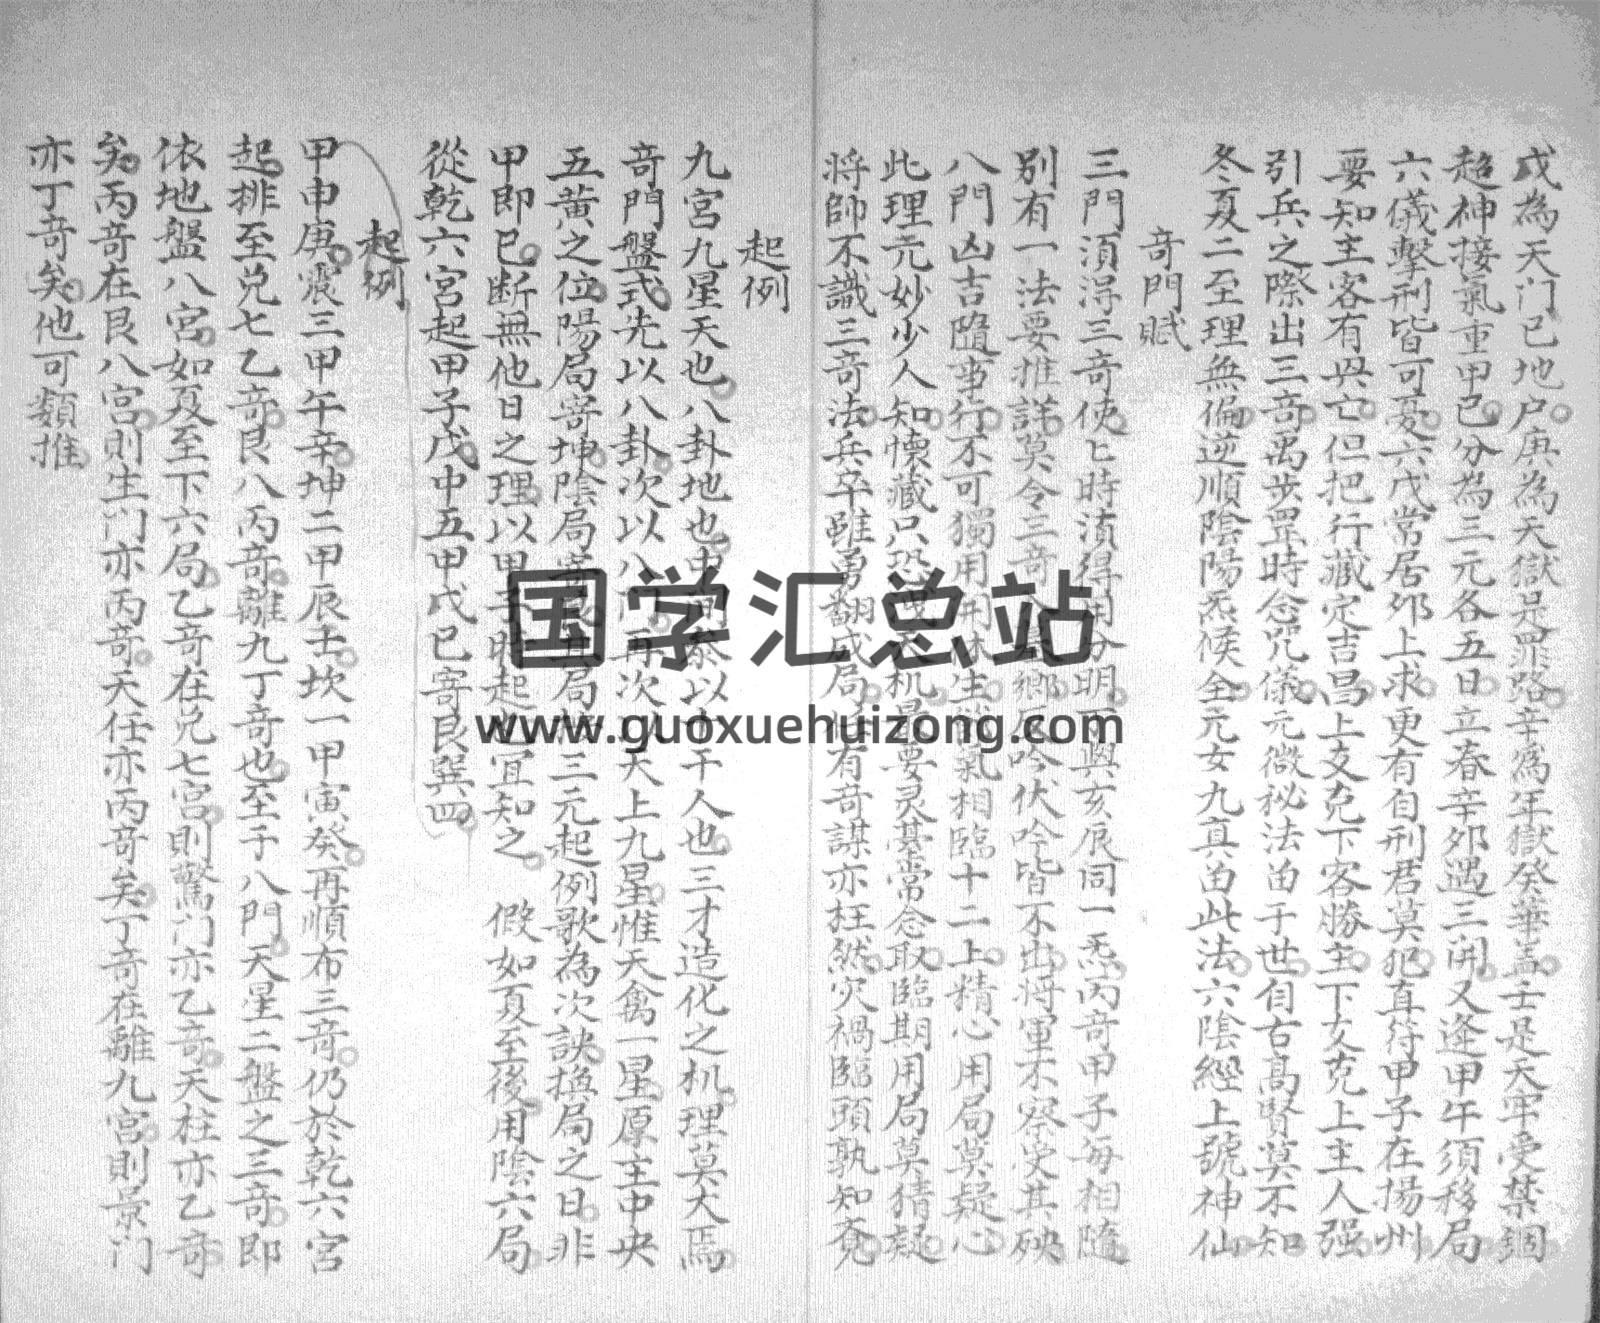 戊為天门己地户庚為天獄是罪路辛為年獄癸華盖壬是天牢受禁錮
超神接氣重甲己分為三元各五日立春辛夘遇三開又逢甲午須移局
六儀擊刑皆可憂六戊常居夘上求更有自刑君莫犯直符甲子在揚州
要知主客有興亡但把行藏定吉昌上支克下客勝主下支克上主人强
引兵之際出三奇禹步罡時念咒儀元微秘法畄于世自古高賢莫不知
冬夏二至理無偏逆順陰陽炁候全元女九真畄此法六陰經上號神仙
奇門賦
三門須淂三奇使匕時湏得用分明丙與亥辰同一炁丙奇甲子每相隨
别有一法要推詳莫令三奇鄉反吟伏吟皆不出將軍不察受其殃
八門凶吉隨事行不可獨用開休生氣相臨十二上精心用局莫疑心
此理元妙少人知懷藏只恐洩天机最要灵基常念取臨期用局莫猜疑
將帥不識三奇法兵卒雖勇翻成局惟有奇謀亦枉然灾禍臨頭孰知覔
起例
九宮九星天也八卦地也中以干人也三才造化之机理莫大焉
奇門盤式先以八卦次以八門再次以天上九星惟天禽一星原主中央
五黄之位陽局寄坤陰局寄艮五局三元起例歌為次訣換局之日非
甲即己断無他日之理以甲子時起也宜知之 假如夏至後用陰六局
從乾六宮起甲子戊中五甲戌己寄艮巽四
起例
甲申庚震三甲午辛坤二甲辰壬坎一甲寅癸再順布三奇仍於乾六宮
起排至兑七乙奇艮八丙奇離九丁奇也至于八門天星二盤之三奇即
依地盤八宮如夏至下六局乙奇在兑七宮則驚门亦乙奇天柱亦乙奇
矣丙奇在艮八宮則生门亦丙奇天任亦丙奇矣丁奇在離九宮則景门
亦丁奇矣他可類推
国学汇总站
www.guoxuehuizong.com